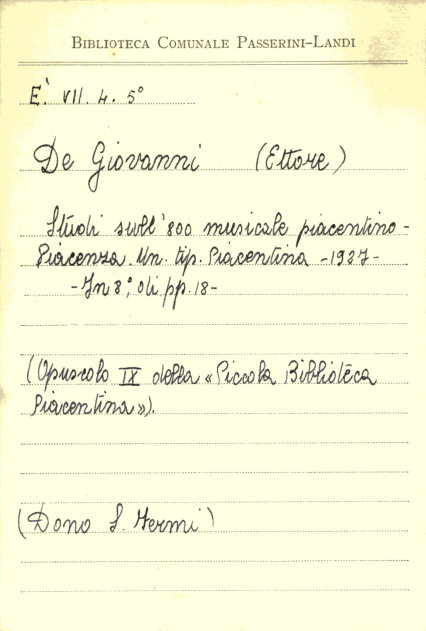 BIBLIOTECA COMUNALE PASSERINI-LANDI
E` VII. 4. 5°
De Giovanni (Ettore)
Studi sull'800 musicale piacentino -
Piacenza. Un. tip. Piacentina - 1927 -
- In 8°, di pp. 18 -
(Opuscolo IX della «Piccola Biblioteca
Piacentina»).
(Dono S. Fermi)